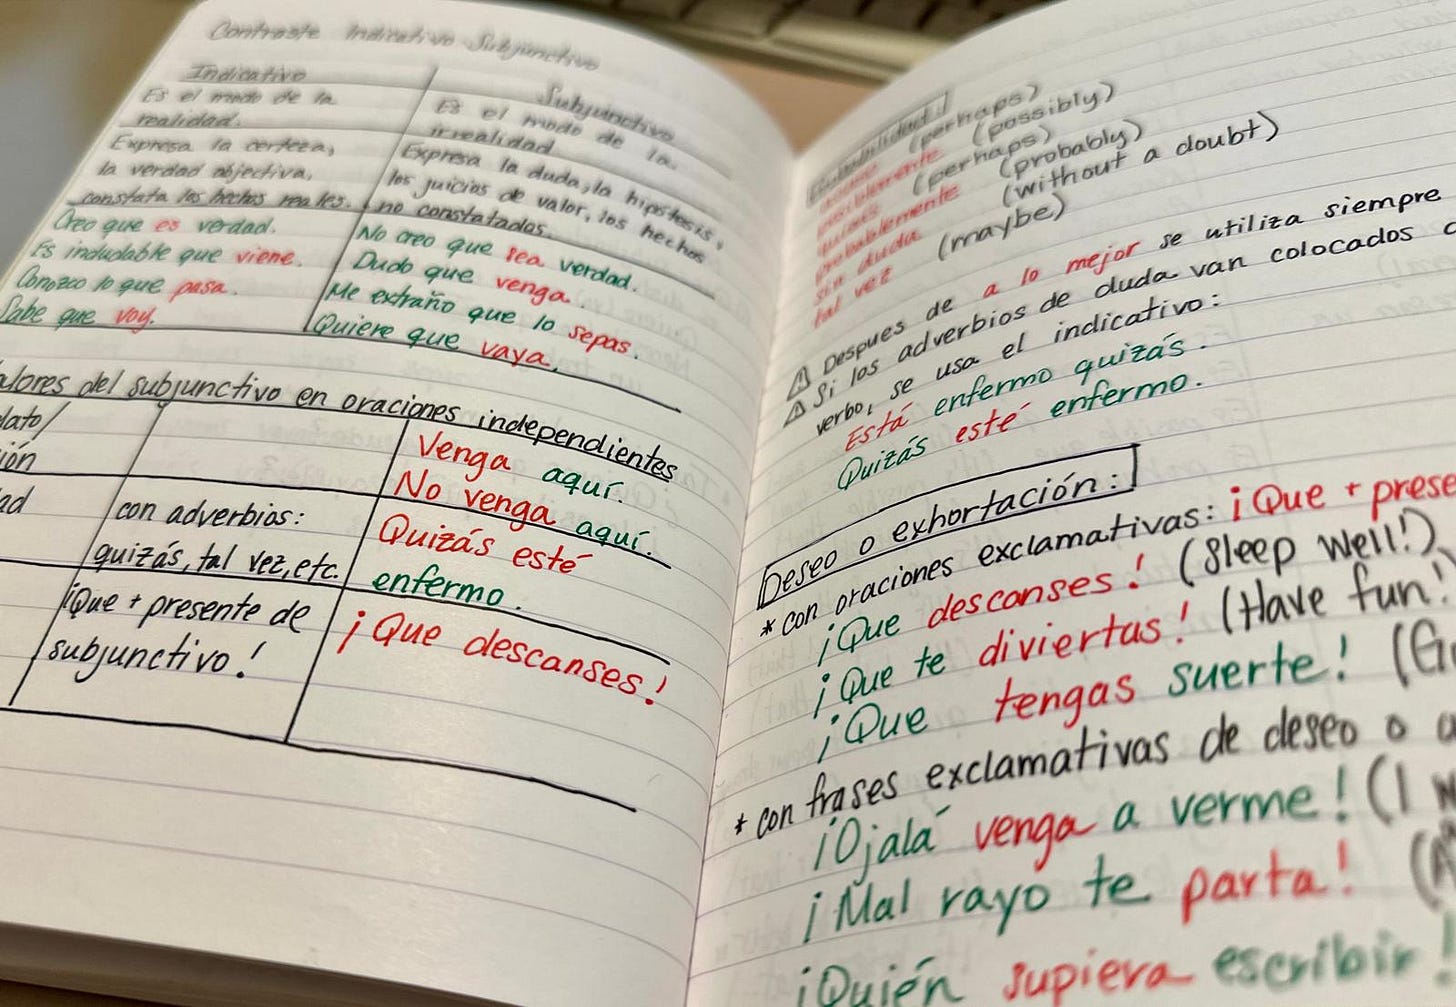 Contraste Indicativo Subjunctivo
Indicativo
Es el modo de la
realidad.
Expresa la certeza,
la verdad objectiva,
constata los hechos reales.
Creo que es verdad.
Es indudable que viene.
Conozco lo que pasa.
Sabe que voy.
Subjunctivo
Es el modo de la
irrealidad
Expresa la duda, la hipótesis,
los juicios de valor, los hechos
no constatados.
No creo que sea verdad.
Dudo que venga.
Me extraño que lo sepas.
Quiere que vaya.
alores del subjunctivo en oraciones independientes
dato/
ión
Venga aquí.
No venga aquí.
ad
con adverbios:
quizás, tal vez, etc.
Quizás esté
enfermo.
¡Que + presente de
subjunctivo!
¡Que descanses!
(perhaps)
posiblemente (possibly)
quizás (perhaps)
probablemente (probably)
sin duda (without a doubt)
tal vez (maybe)
⚠ Despues de a lo mejor se utiliza siempre
⚠ Si los adverbios de duda van colocados
verbo, se usa el indicativo:
Está enfermo quizás.
Quizás esté enfermo.
Deseo o exhortación:
* con oraciones exclamativas: ¡Que + prese
¡Que descanses! (Sleep well!)
¡Que te diviertas! (Have fun!
¡Que tengas suerte! (G
* con frases exclamativas de deseo o
¡Ojalá venga a verme! (I
¡Mal rayo te parta!
¡Quién supiera escribir!